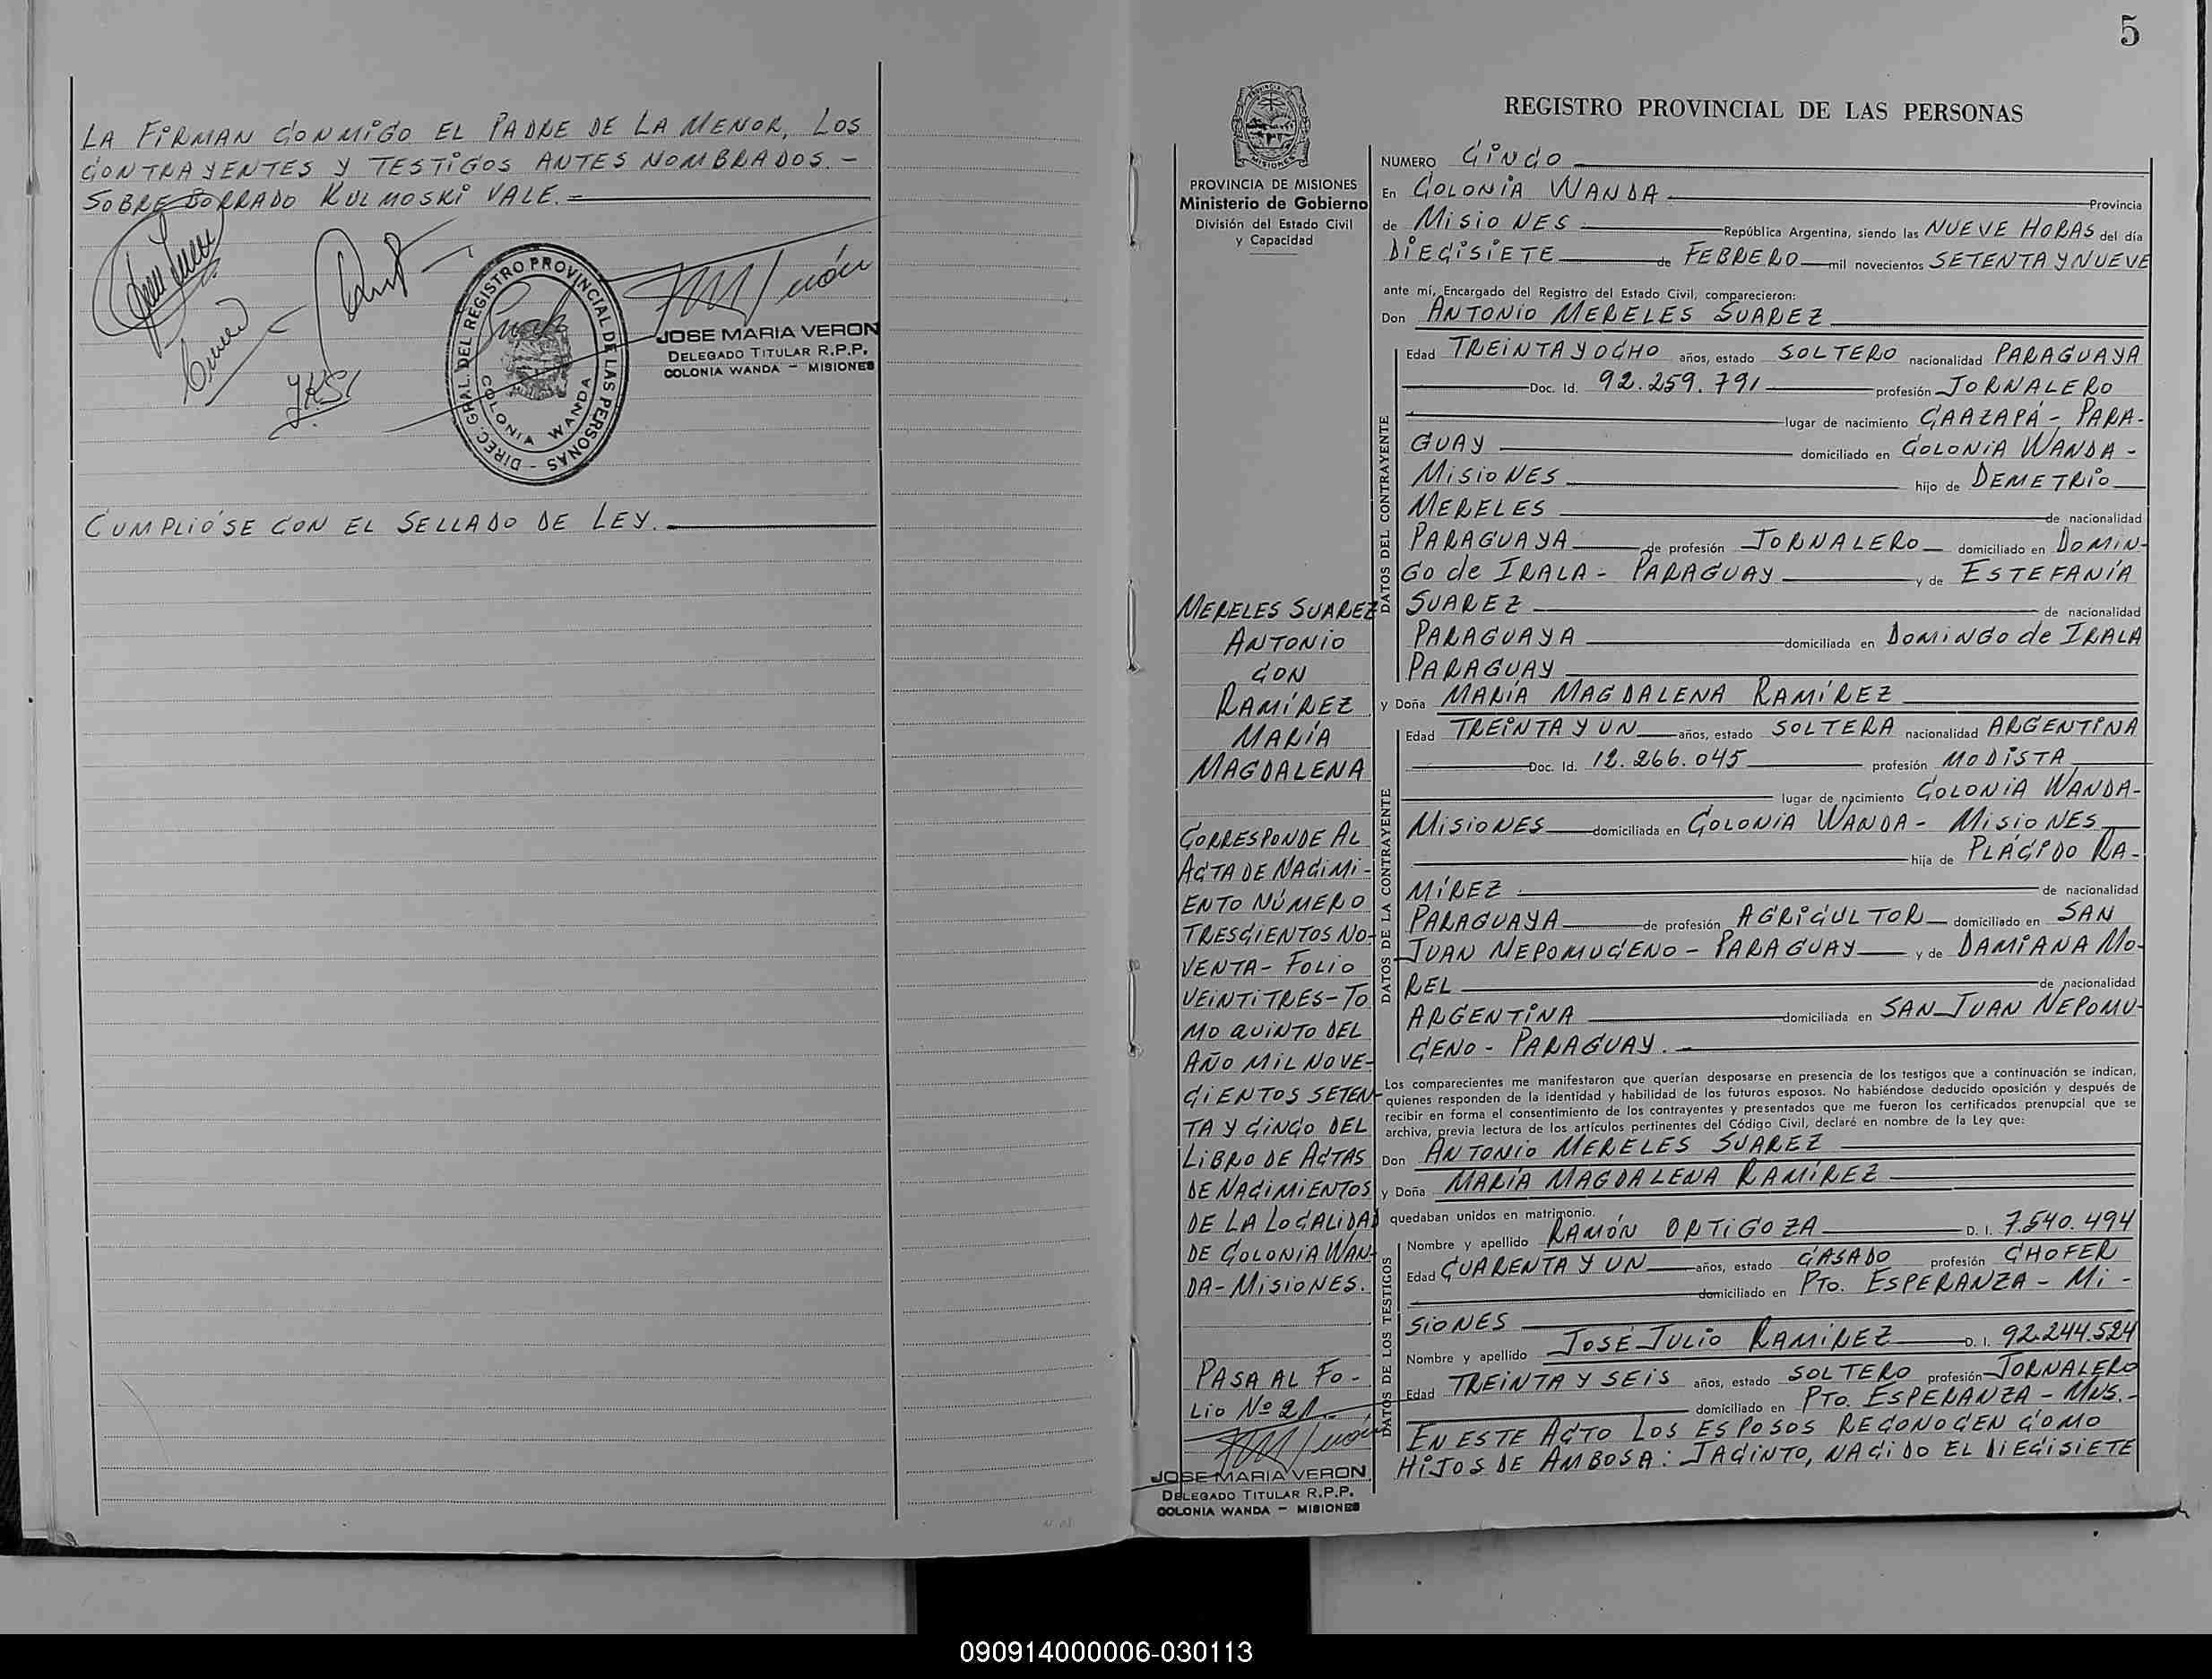 LA FIRMAN CONMIGO EL PADRE DE LA MENOR, LOS
CONTRAYENTES Y TESTIGOS ANTES NOMBRADOS.-
SOBRE BORRADO KULMOSKI VALE.=
JOSE MARIA VERON
DELEGADO TITULAR R.P.P.
COLONIA WANDA - MISIONES
DIREC. GRAL. DEL REGISTRO PROVINCIAL DE LAS PERSONAS -
COLONIA WANDA
CUMPLIÓSE CON EL SELLADO DE LEY.
5
MISIONES
PROVINCIA DE MISIONES
Ministerio de Gobierno
División del Estado Civil
y Capacidad
MERELES SUAREZ
ANTONIO
CON
RAMÍREZ
MARÍA
MAGDALENA
CORRESPONDE AL
ACTA DE NACIMI-
ENTO NÚMERO
TRESCIENTOS NO-
VENTA- FOLIO
VEINTITRES- TO
MO QUINTO DEL
AÑO MIL NOVE-
CIENTOS SETEN-
TA Y CINCO DEL
LIBRO DE ACTAS
DE NACIMIENTOS
DE LA LOCALIDAD
DE COLONIA WAN-
DA- MISIONES.
PASA AL FO-
LIO Nº 21.-
JOSE MARIA VERON
DELEGADO TITULAR R.P.P.
COLONIA WANDA - MISIONES
REGISTRO PROVINCIAL DE LAS PERSONAS
NUMERO CINCO
En COLONIA WANDA Provincia
de MISIONES República Argentina, siendo las NUEVE HORAS del día
DIECISIETE de FEBRERO mil novecientos SETENTA Y NUEVE
ante mí, Encargado del Registro del Estado Civil, comparecieron:
Don ANTONIO MERELES SUAREZ
DATOS DEL CONTRAYENTE
Edad TREINTA Y OCHO años, estado SOLTERO nacionalidad PARAGUAYA
Doc. Id. 92.259.791 profesión JORNALERO
lugar de nacimiento CAAZAPÁ - PARA-
GUAY domiciliado en COLONIA WANDA -
MISIONES hijo de DEMETRIO
MERELES de nacionalidad
PARAGUAYA de profesión JORNALERO domiciliado en DOMIN-
GO de IRALA - PARAGUAY y de ESTEFANÍA
SUAREZ de nacionalidad
PARAGUAYA domiciliada en DOMINGO de IRALA
PARAGUAY
y Doña MARÍA MAGDALENA RAMÍREZ
DATOS DE LA CONTRAYENTE
Edad TREINTA Y UN años, estado SOLTERA nacionalidad ARGENTINA
Doc. Id. 12.266.045 profesión MODISTA
lugar de nacimiento COLONIA WANDA-
MISIONES domiciliada en COLONIA WANDA - MISIONES
hija de PLÁCIDO RA-
MÍREZ de nacionalidad
PARAGUAYA de profesión AGRICULTOR domiciliado en SAN
JUAN NEPOMUCENO - PARAGUAY y de DAMIANA MO-
REL de nacionalidad
ARGENTINA domiciliada en SAN JUAN NEPOMU-
CENO - PARAGUAY.-
Los comparecientes me manifestaron que querían desposarse en presencia de los testigos que a continuación se indican,
quienes responden de la identidad y habilidad de los futuros esposos. No habiéndose deducido oposición y después de
recibir en forma el consentimiento de los contrayentes y presentados que me fueron los certificados prenupcial que se
archiva, previa lectura de los artículos pertinentes del Código Civil, declaré en nombre de la Ley que:
Don ANTONIO MERELES SUAREZ
y Doña MARÍA MAGDALENA RAMÍREZ
quedaban unidos en matrimonio.
DATOS DE LOS TESTIGOS
Nombre y apellido RAMÓN ORTIGOZA D. I. 7.540.494
Edad CUARENTA Y UN años, estado CASADO profesión CHOFER
domiciliado en PTO. ESPERANZA - MI-
SIONES
Nombre y apellido JOSÉ JULIO RAMÍREZ D. I. 92.244.524
Edad TREINTA Y SEIS años, estado SOLTERO profesión JORNALERO
domiciliado en PTO. ESPERANZA - MNS.-
EN ESTE ACTO LOS ESPOSOS RECONOCEN COMO
HIJOS DE AMBOSA: JACINTO, NACIDO EL DIECISIETE
090914000006-030113